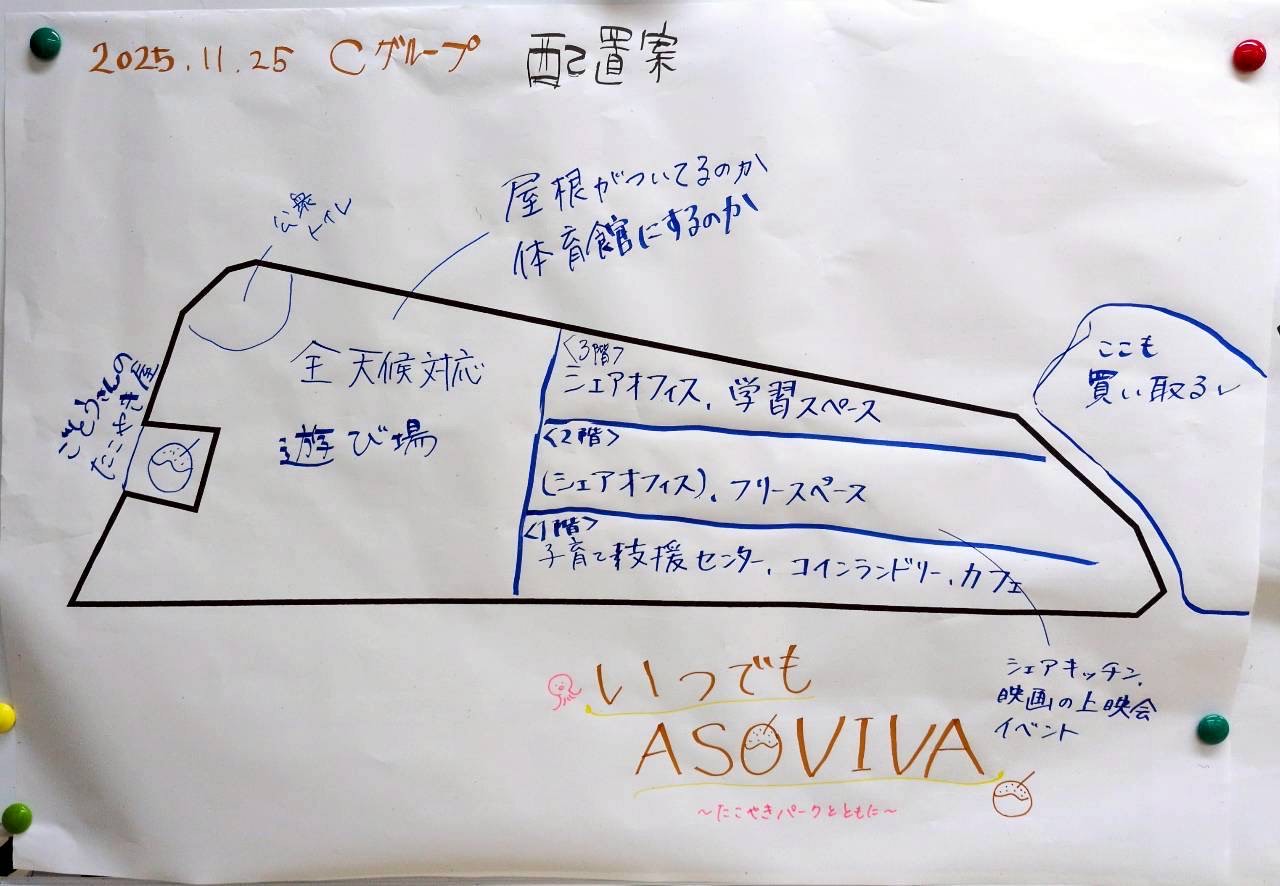 2025.11.25 Cグループ 配置案
公衆
トイレ
屋根がついてるのか
体育館にするのか
ごとうさんの
たこやき屋
全天候対応
遊び場
<3階>
シェアオフィス、学習スペース
<2階>
(シェアオフィス)、フリースペース
<1階>
子育て支援センター、コインランドリー、カフェ
ここも
買い取るレ
シェアキッチン、
映画の上映会
イベント
いつでも
ASOVIVA
~たこやきパークとともに~